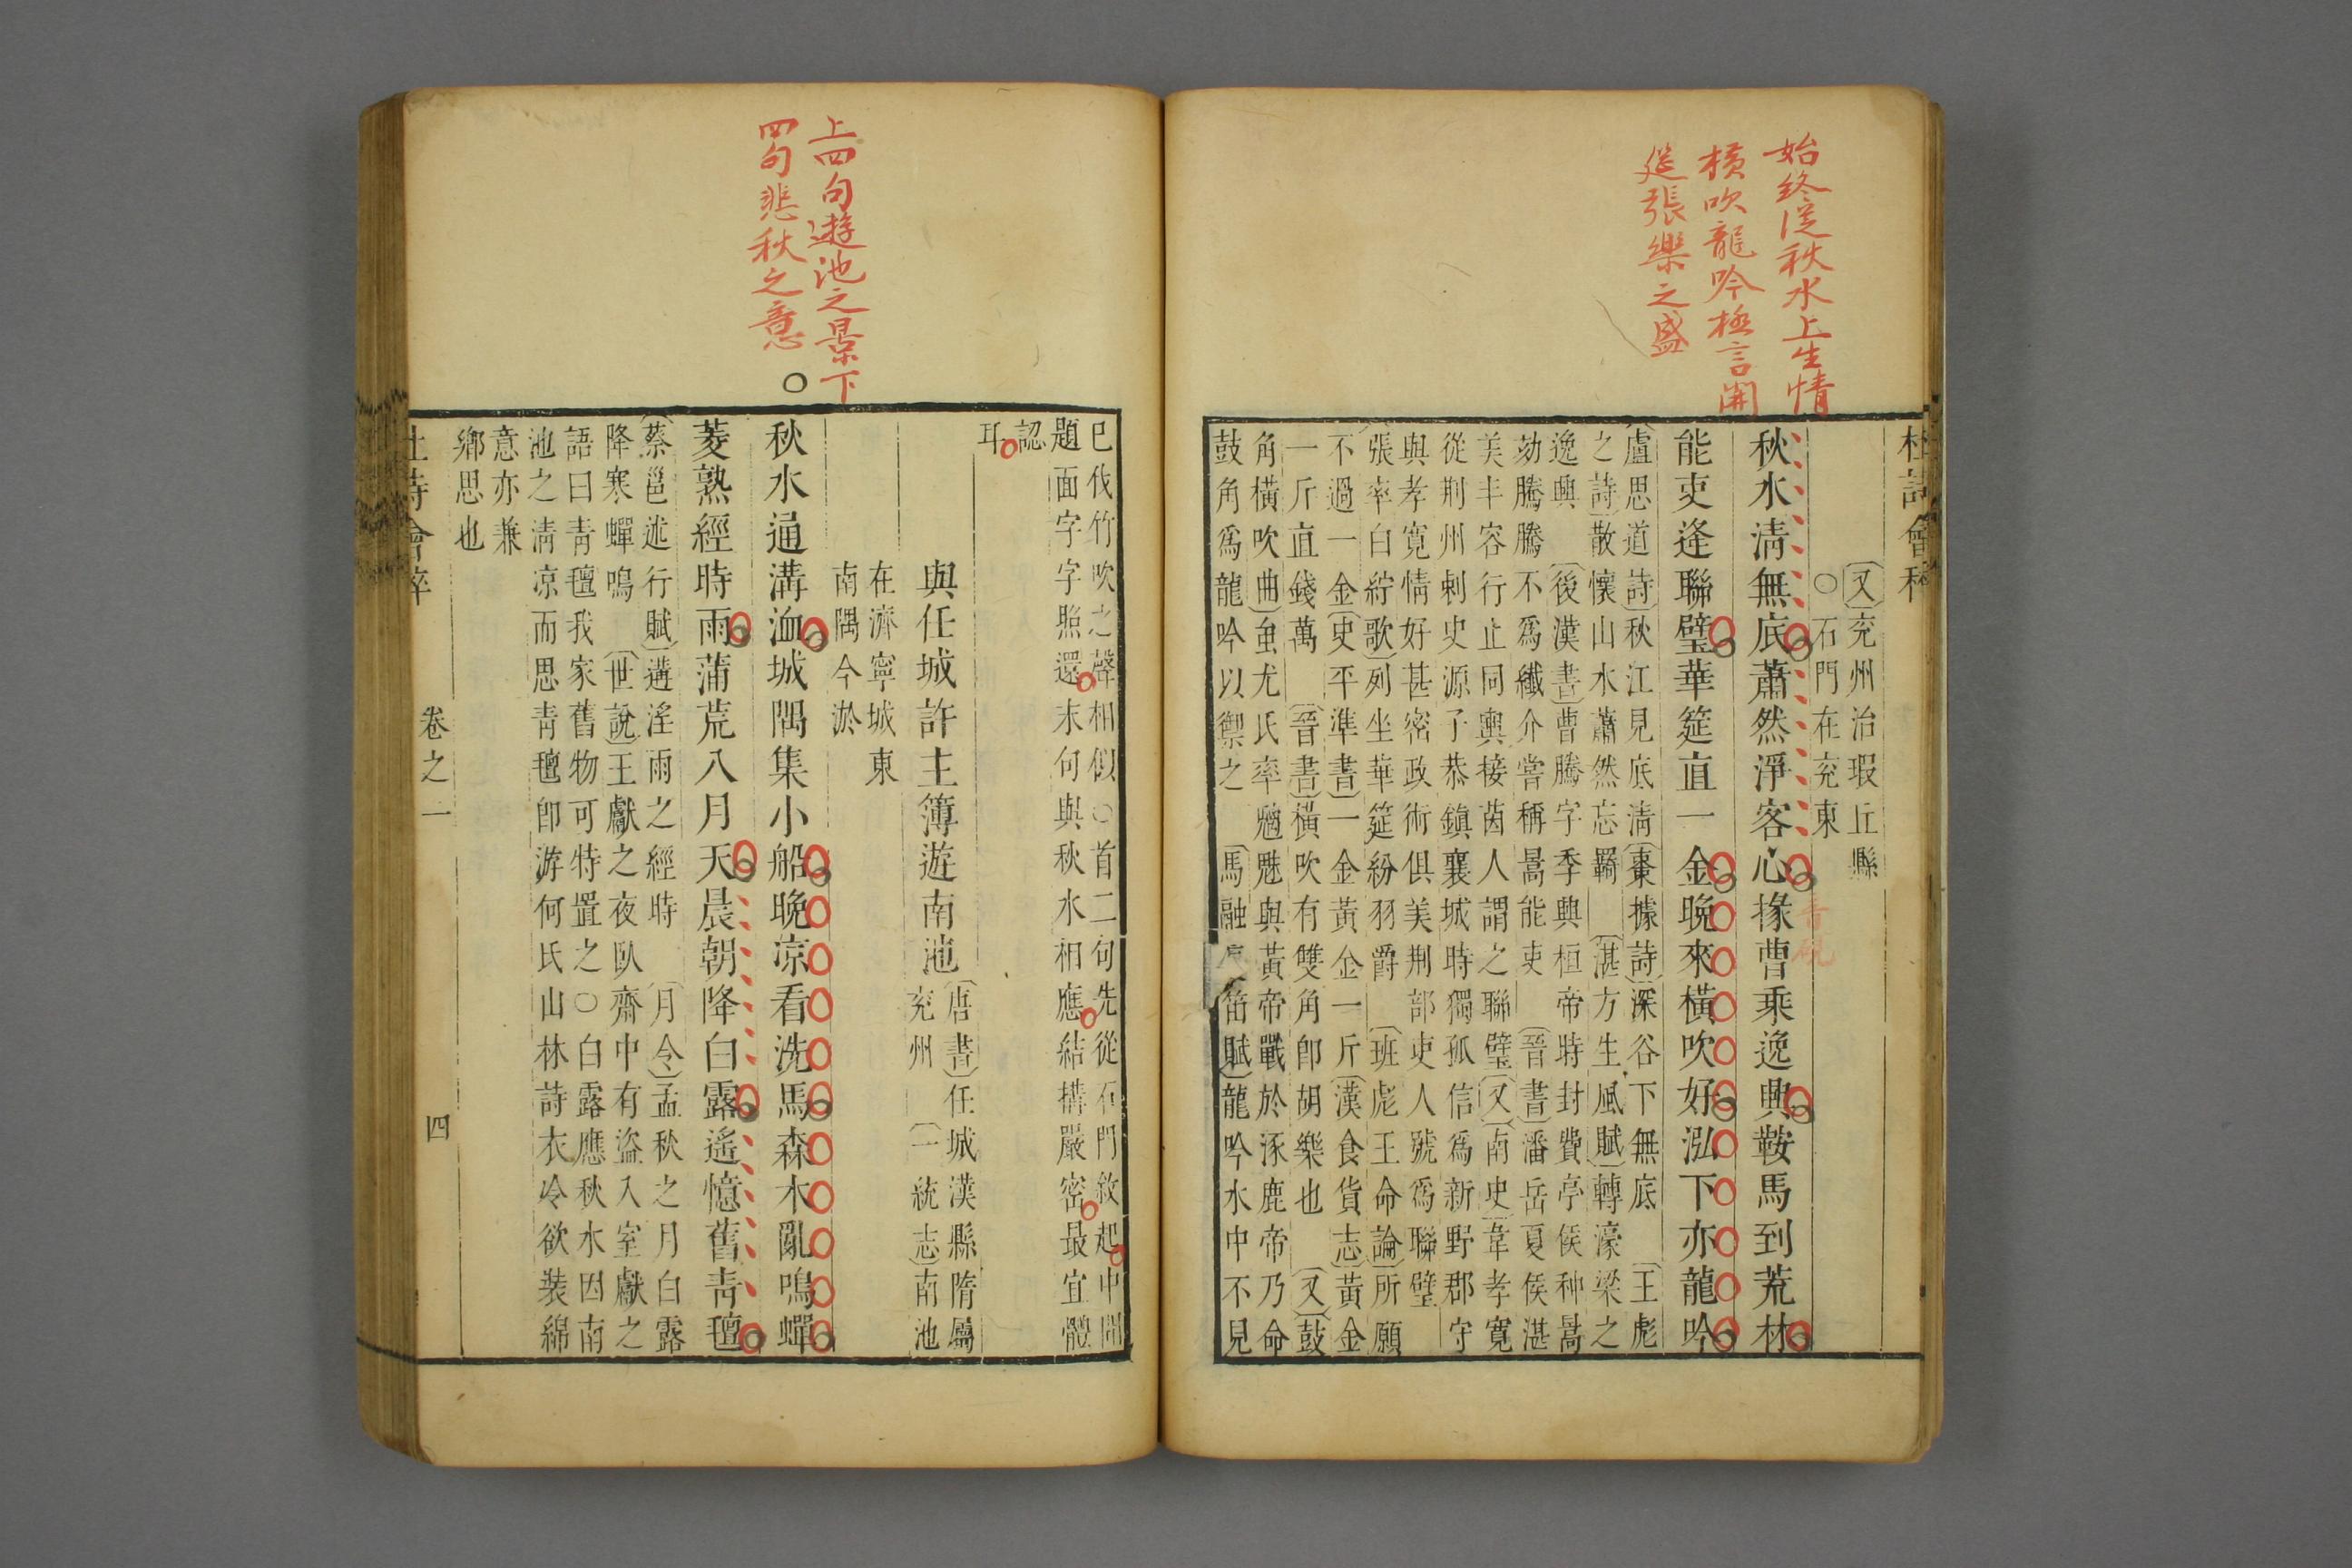 始終從秋水上生情
橫吹龍吟極言開
筵張樂之盛
杜詩會稡
〔又〕兗州治瑕丘縣
○石門在兗東
秋水淸無底蕭然淨客心掾曹乘逸興鞍馬到荒林
能吏逢聯璧華筵直一金晚來橫吹好泓下亦龍吟
〔盧思道詩〕秋江見底淸〔棗據詩〕深谷下無底〔王彪
之詩〕散懷山水蕭然忘羈〔湛方生風賦〕轉濠梁之
逸興〔後漢書〕曹騰字季興桓帝時封費亭侯种暠
劾騰騰不爲纖介嘗稱暠能吏〔晉書〕潘岳夏侯湛
美丰容行止同輿接茵人謂之聯璧〔又〕〔南史〕韋孝寬
從荆州刺史源子恭鎭襄城時獨孤信爲新野郡守
與孝寛情好甚密政術俱美荆部吏人號爲聯璧
〔張率白紵歌〕列坐華筵紛羽爵〔班彪王命論〕所願
不過一金〔史平準書〕一金黃金一斤〔漢食貨志〕黃金
一斤直錢萬〔晉書〕橫吹有雙角卽胡樂也〔又〕〔鼓
角橫吹曲〕蚩尤氏率魑魅與黃帝戰於涿鹿帝乃命
鼓角爲龍吟以禦之〔馬融長笛賦〕龍吟水中不見
上四句遊池之景下
四句悲秋之意
巳伐竹吹之聲相似○首二句先從石門敘起中間
題面字字照還末何與秋水相應結搆嚴密最宜體
認
耳
與任城許主簿遊南池〔唐書〕任城漢縣隋屬
兗州〔一統志〕南池
在濟寧城東
南隅今淤
秋水通溝洫城隅集小船晚凉看洗馬森木亂鳴蟬
菱熟經時雨蒲荒八月天晨朝降白露遙憶舊靑氊
〔蔡邕述行賦〕遘淫雨之經時〔月令〕孟秋之月白露
降寒蟬鳴〔世說〕王獻之夜臥齋中有盜入室獻之
語曰靑氊我家舊物可特置之○白露應秋水因南
池之淸凉而思靑氊卽游何氏山林詩衣冷欲裝綿
意亦兼
鄉思也
杜詩會稡
卷之一
四